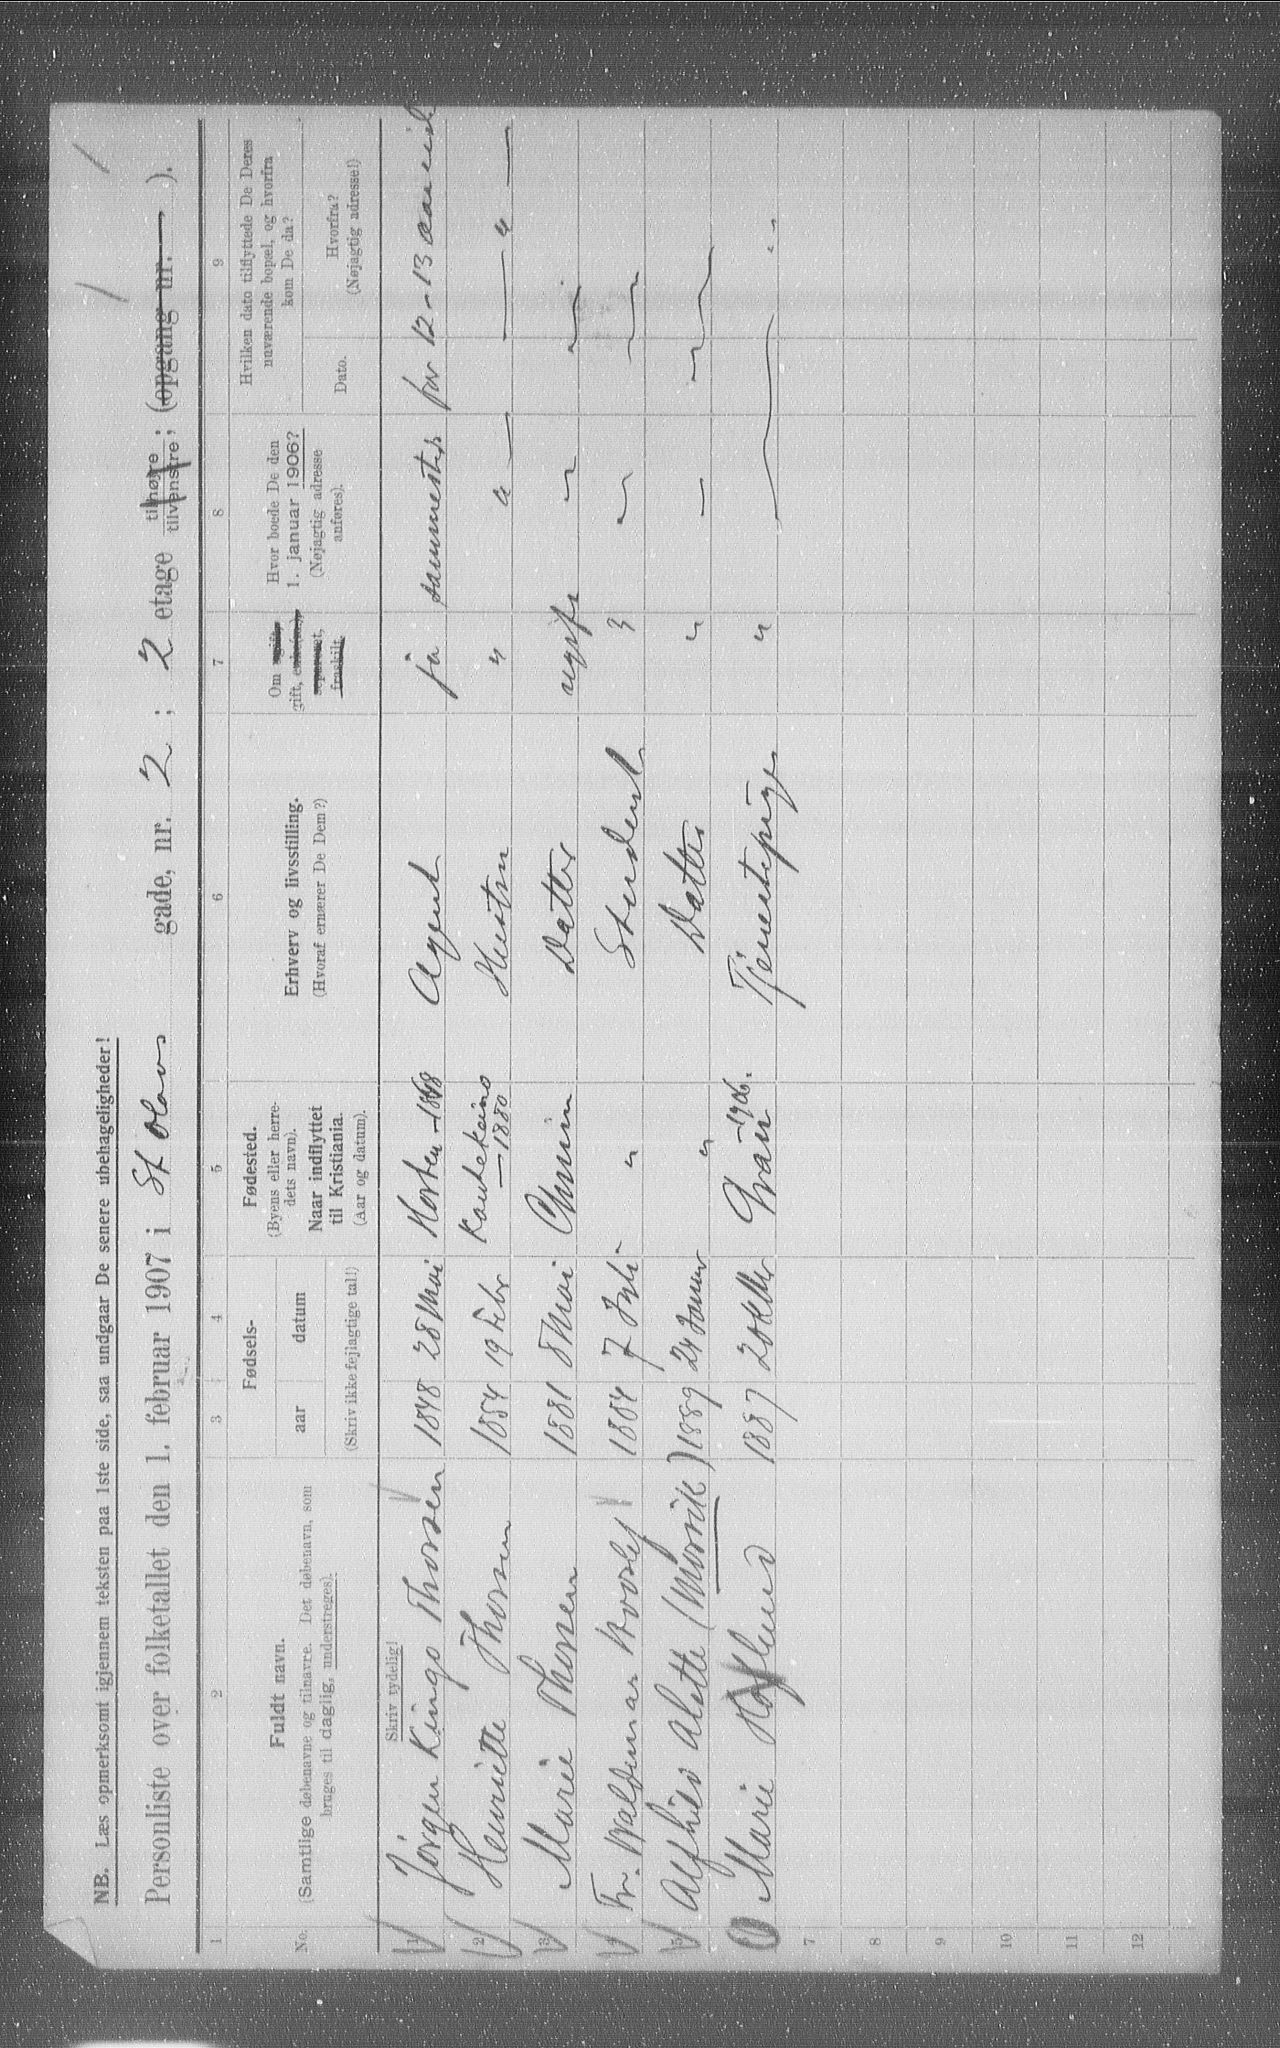 NB. Læs opmerksomt igjennem teksten paa 1ste side, saa undgaar De senere ubehageligheder!
Personliste over folketallet den 1. februar 1907 i St Olavs gade, nr. 2 ; 2 etage tilhøjre tilvenstre ; (opgang nr. — ).
1 2 3 4 5 6 7 8 9
No. Fuldt navn. (Samtlige døbenavne og tilnavne. Det døbenavn, som bruges til daglig, understreges).
Fødsels- aar datum (Skriv ikke fejlagtige tal!)
Fødested. (Byens eller herredets navn). Naar indflyttet til Kristiania. (Aar og datum).
Erhverv og livsstilling. (Hvoraf ernærer De Dem?)
Om ugift, gift, enke(m.), separeret, fraskilt.
Hvor boede De den 1. januar 1906? (Nøjagtig adresse anføres).
Hvilken dato tilflyttede De Deres nuværende bopæl, og hvorfra kom De da?
Dato. Hvorfra? (Nøjagtig adresse!)
Skriv tydelig!
1 Jörgen Kingo Thorsen 1848 28 Mai Horten Agent ja sammesteds for 12-13 Aar
2 Henriette Thorsen 1854 19 Febr Kautokeino — 1880 Hustru " " — — " —
3 Marie Thorsen 1881 8 Mai Chria Datter ugift
4 Fr. Waldemar 1884 7 Juli " Student "
5 Alfhild Alette 1889 24 Januar " Datter "
6 Marie 1887 20 Gran 1906. Tjenestepige "
7
8
9
10
11
12